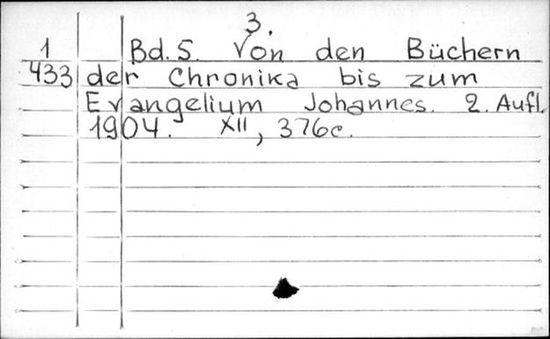 3.
1 Bd. 5. Von den Büchern
433 der Chronika bis zum
Evangelium Johannes. 2. Aufl.
1904. XII, 376c.